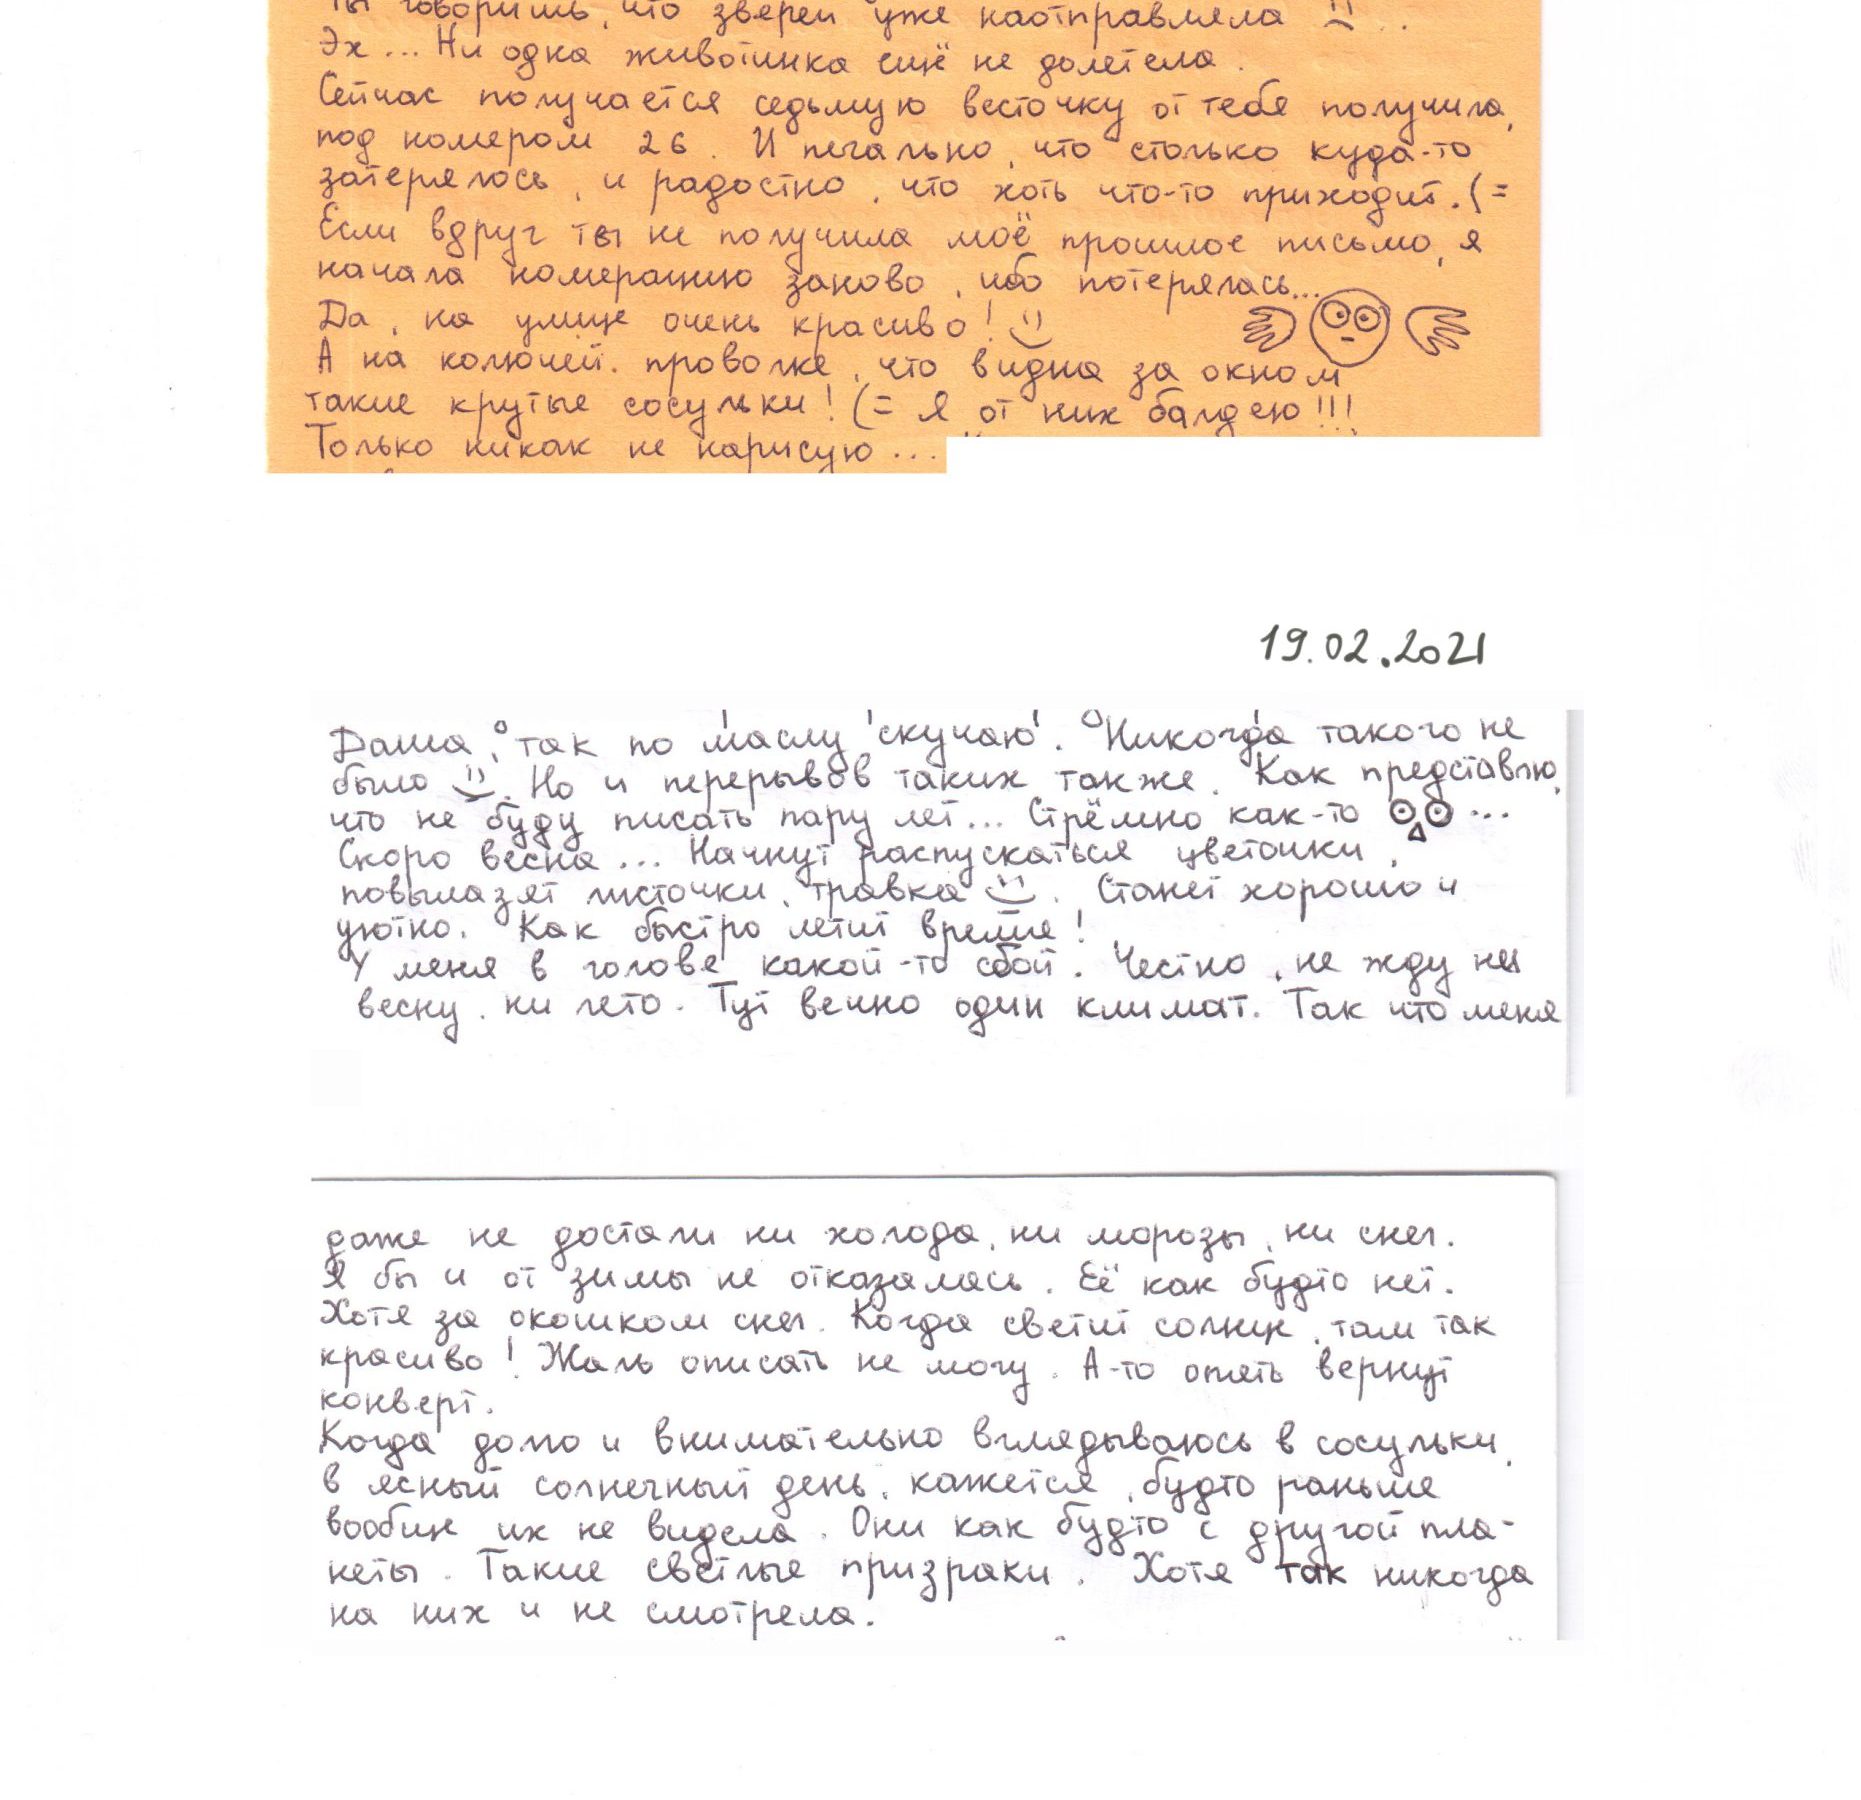 ты говоришь, что зверей уже наотправляла
Эх... Ни одна животинка ещё не долетела.
Сейчас получается седьмую весточку от тебя получила,
под номером 26. И печально, что столько куда-то
затерялось, и радостно, что хоть что-то приходит. (=
Если вдруг ты не получила моё прошлое письмо, я
начала номерацию заново, ибо потерялась...
Да, на улице очень красиво!
А на колючей проволке, что видна за окном
такие крутые сосульки! (= Я от них балдею!!!
Только никак не нарисую...
19.02.2021
Даша, так по маслу скучаю. Никогда такого не
было. Но и перерывов таких также. Как представлю,
что не буду писать пару лет... Стрёмно как-то ...
Скоро весна... Начнут распускаться цветочки,
повылазят листочки, травка. Станет хорошо и
уютно. Как быстро летит время!
У меня в голове какой-то сбой. Честно, не жду ни
весну, ни лето. Тут вечно один климат. Так что меня
даже не достали ни холода, ни морозы, ни снег.
Я бы и от зимы не отказалась. Её как будто нет.
Хотя за окошком снег. Когда светит солнце, там так
красиво! Жаль описать не могу. А-то опять вернут
конверт.
Когда долго и внимательно вглядываюсь в сосульки,
в ясный солнечный день, кажется, будто раньше
вообще их не видела. Они как будто с другой пла-
неты. Такие светлые призраки. Хотя так никогда
на них и не смотрела.